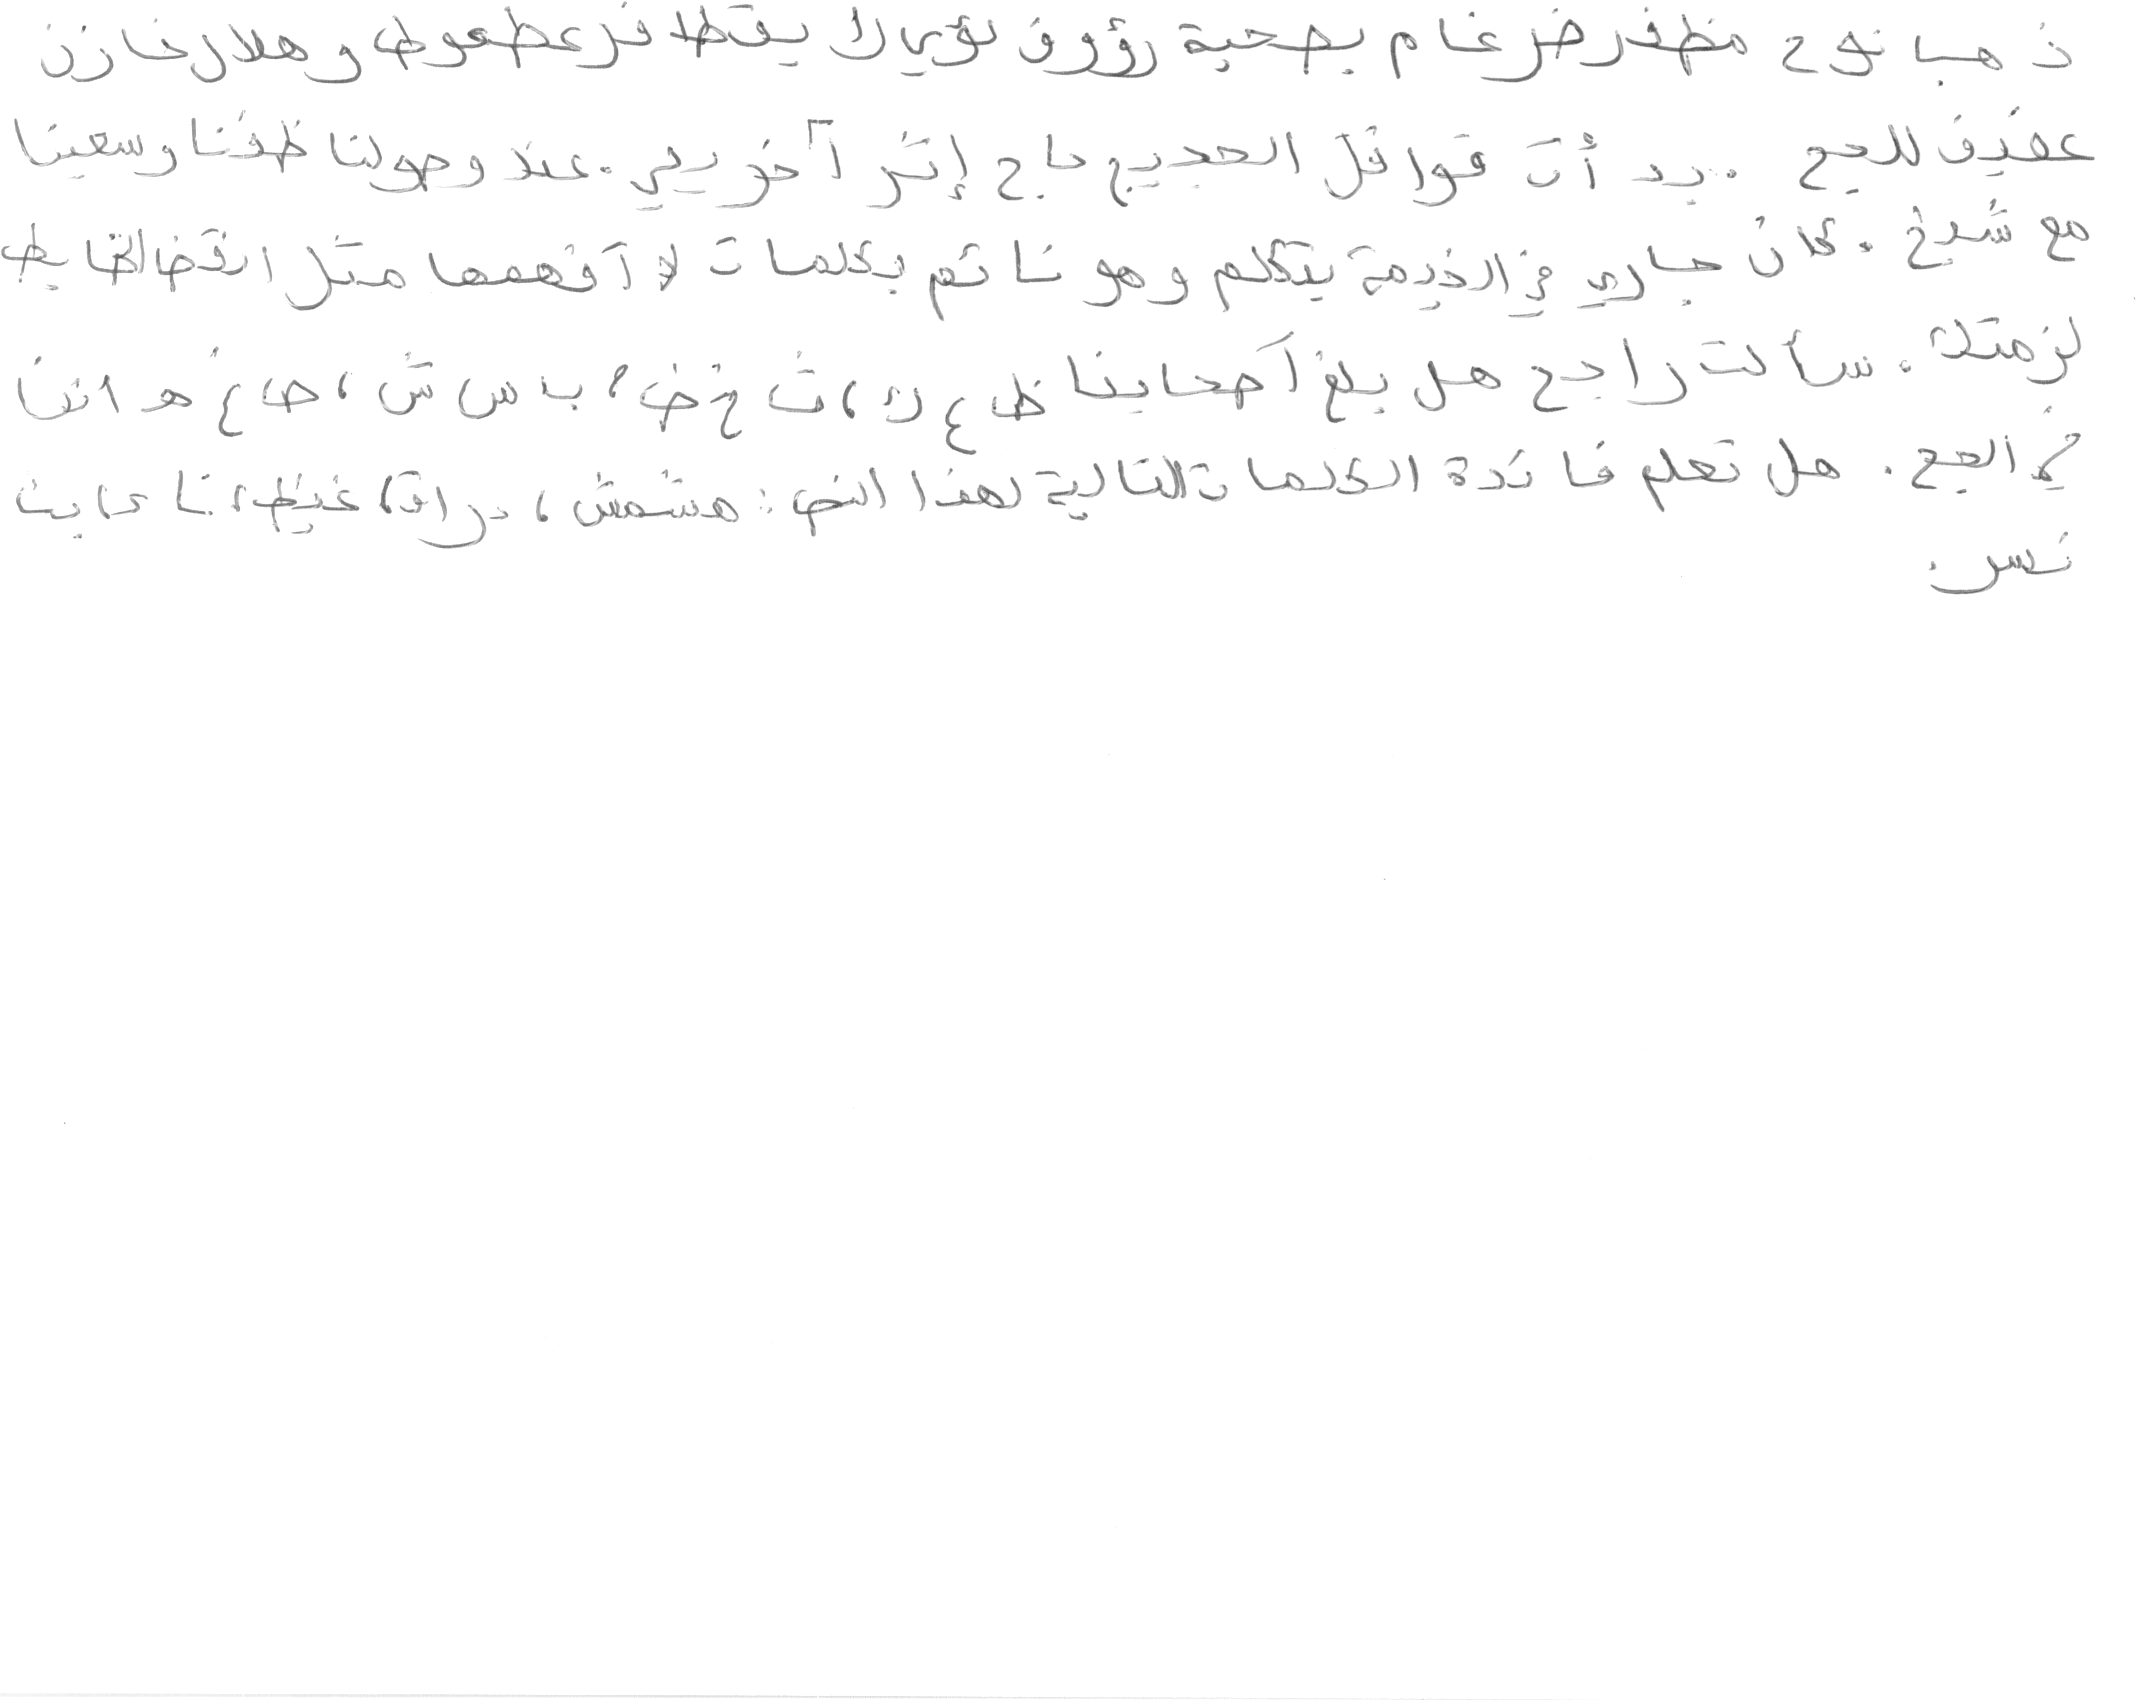 ذهبا نوح مظفر ضرغام بصحبة رؤوف لؤي ال يقظ فز عطعوط و هلال خازن
عفيف للحج . بيد أن قوافل الحجيج حاج إثر آخر يحي . عند وصولنا طفنا وسعينا
مع شيخ . كان جاري في الخيمة يتكلم وهو نائم بكلمات لا أفهمها مثل انقضا الخايط
لزمتك . سألت راجح هل بلغ أصحابنا ظ ع ر ، ث خ ض ، ب س ش ، ص غ حد اذىً
في الحج . هل تعلم فائدة الكلمات التالية لهذا النص : مشمش ، دراق ، غيظ ، تا كايت
نس .